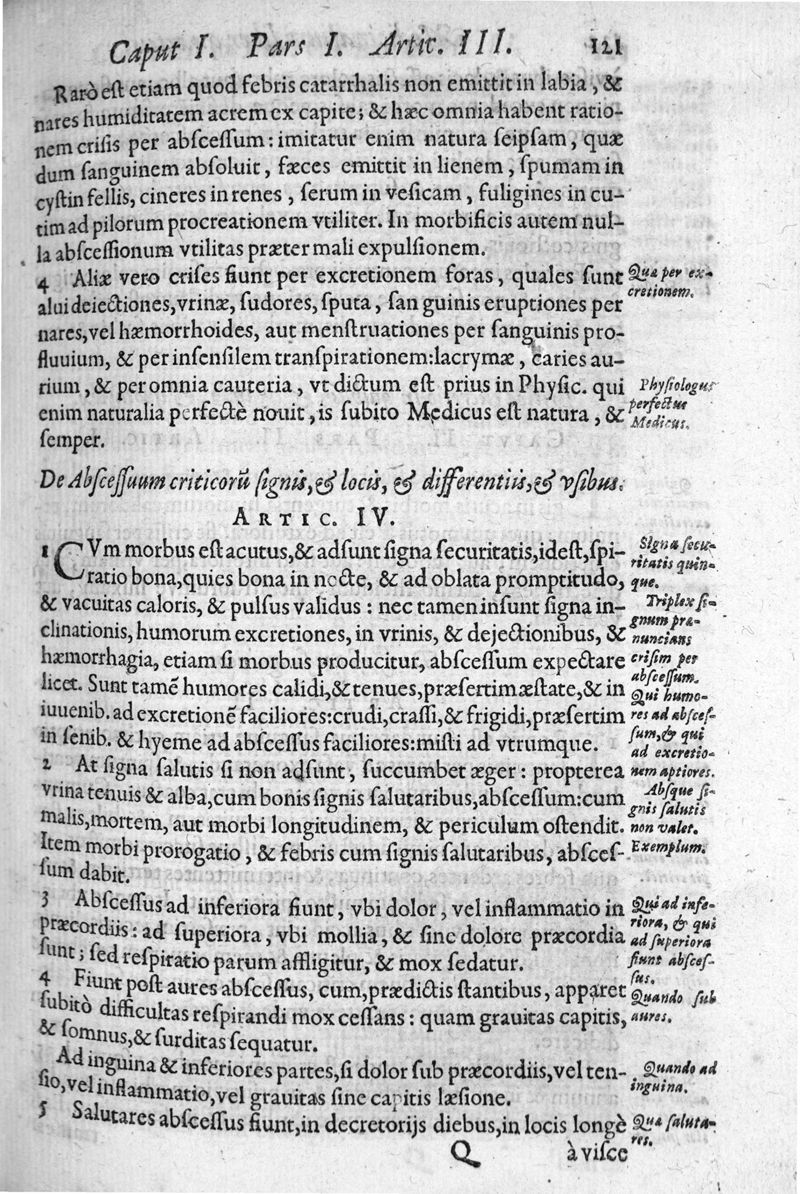 Caput I. Pars I. Artic. III. 121
Rarò est etiam quod febris catarrhalis non emittit in labia, &
nares humiditatem acrem ex capite; & hæc omnia habent ratio-
nem crisis per abscessum: imitatur enim natura seipsam, quæ
dum sanguinem absoluit, fæces emittit in lienem, spumam in
cystin fellis, cineres in renes, serum in vesicam, fuligines in cu-
tim ad pilorum procreationem vtiliter. In morbificis autem nul-
la abscessionum vtilitas præter mali expulsionem.
4 Aliæ vero crises fiunt per excretionem foras, quales sunt
alui deiectiones, vrinæ, sudores, sputa, sanguinis eruptiones per
nares, vel hæmorrhoides, aut menstruationes per sanguinis pro-
fluuium, & per insensilem transpirationem: lacrymæ, caries au-
rium, & per omnia cauteria, vt dictum est prius in Physic. qui
enim naturalia perfectè nouit, is subito Medicus est natura, &
semper.
Quæ per ex-
cretionem.
Physiologus
perfectus
Medicus.
De Abscessuum criticorũ signis, & locis, & differentiis, & vsibus.
ARTIC. IV.
1 CVm morbus est acutus, & adsunt signa securitatis, idest, spi-
ratio bona, quies bona in nocte, & ad oblata promptitudo,
& vacuitas caloris, & pulsus validus: nec tamen insunt signa in-
clinationis, humorum excretiones, in vrinis, & dejectionibus, &
hæmorrhagia, etiam si morbus producitur, abscessum expectare
licet. Sunt tamẽ humores calidi, & tenues, præsertim æstate, & in
iuuenib. ad excretionẽ faciliores: crudi, crassi, & frigidi, præsertim
in senib. & hyeme ad abscessus faciliores: misti ad vtrumque.
2 At signa salutis si non adsunt, succumbet æger: propterea
vrina tenuis & alba, cum bonis signis salutaribus, abscessum: cum
malis, mortem, aut morbi longitudinem, & periculum ostendit.
Item morbi prorogatio, & febris cum signis salutaribus, absces-
sum dabit.
3 Abscessus ad inferiora fiunt, vbi dolor, vel inflammatio in
præcordiis: ad superiora, vbi mollia, & sine dolore præcordia
sunt; sed respiratio parum affligitur, & mox sedatur.
4 Fiunt post aures abscessus, cum, prædictis stantibus, apparet
subitò difficultas respirandi mox cessans: quam grauitas capitis,
& somnus, & surditas sequatur.
Ad inguina & inferiores partes, si dolor sub præcordiis, vel ten-
sio, vel inflammatio, vel grauitas sine capitis læsione.
5 Salutares abscessus fiunt, in decretorijs diebus, in locis longè
Signa secu-
ritatis quin-
que.
Triplex si-
gnum præ-
nuncians
crisim per
abscessum.
Qui humo-
res ad absces-
sum, & qui
ad excretio-
nem aptiores.
Absque si-
gnis salutis
non valet.
Exemplum.
Qui ad infe-
riora, & qui
ad superiora
fiunt absces-
sus.
Quando sub
aures.
Quando ad
inguina.
Quæ saluta-
res.
Q à visce